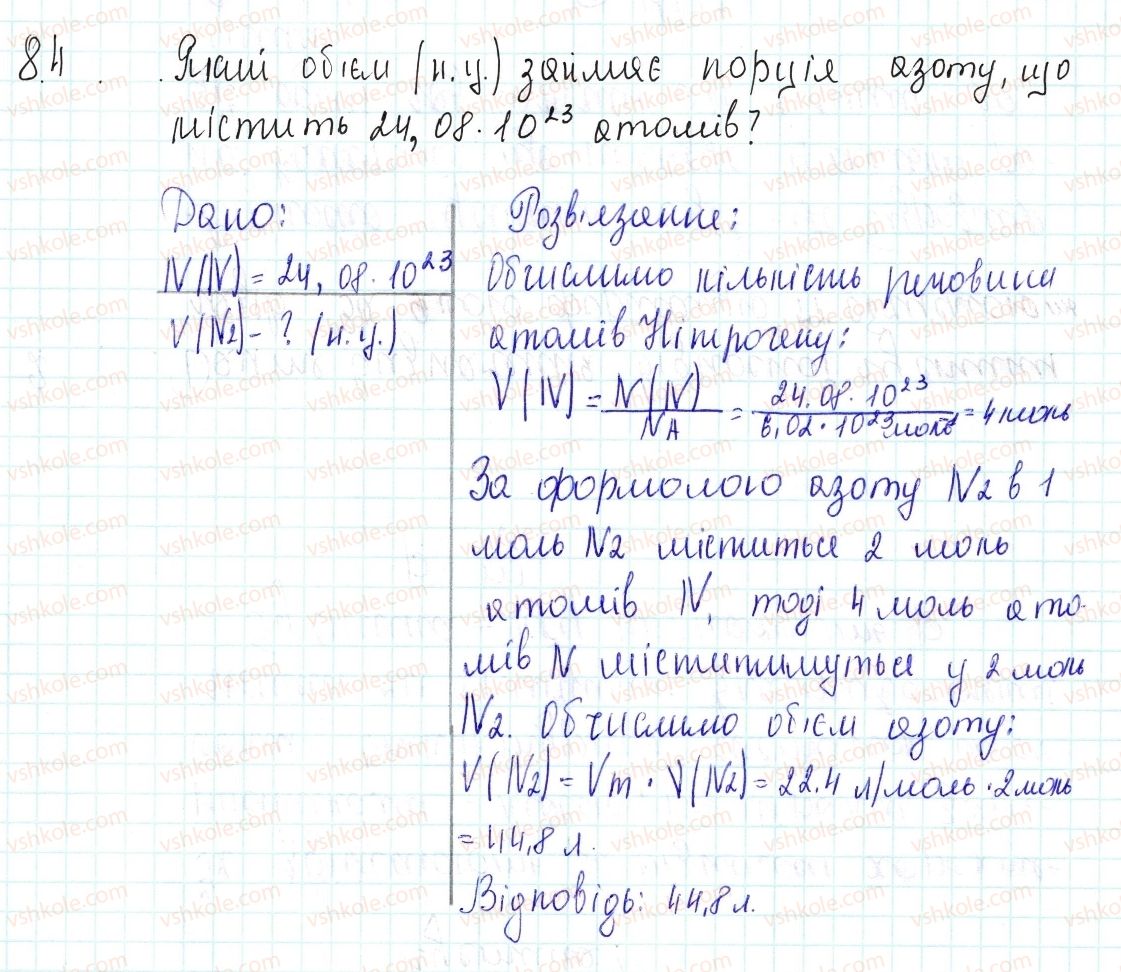 8.4 Який об'єм (н.у.) займає порція азоту, що
містить 24,08·10²³ атомів?
Дано:
N(N) = 24,08·10²³
V(N2) - ? (н.у.)
Розв'язання:
Обчислимо кількість речовини
атомів Нітрогену:
V(N) = N(N)/NA = 24.08·10²³/6,02·10²³моль = 4 моль
За формолою азоту N2 в 1
моль N2 міститься 2 моль
атомів N, тоді 4 моль ато-
мів N міститимуться у 2 моль
N2. Обчислимо об'єм азоту:
V(N2) = Vm · V(N2) = 22.4 л/моль · 2 моль
= 44,8 л.
Відповідь: 44,8 л.
vshkole.com